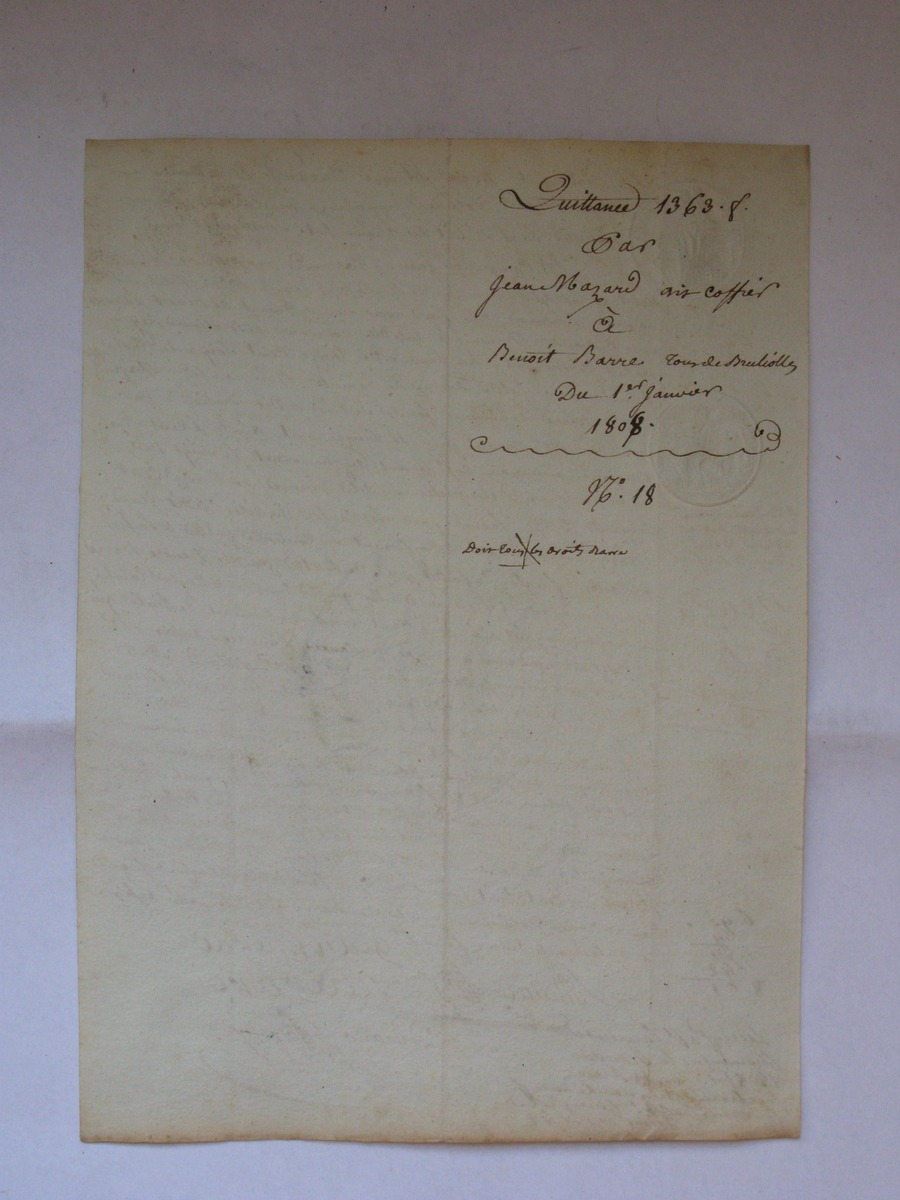 Quittance 1363. f.
Par
Jean Mazard dit Coffier
à
Benoit Barre tous de Brulliolles
Du 1er Janvier
1808.
N.° 18
Doit tous les droits